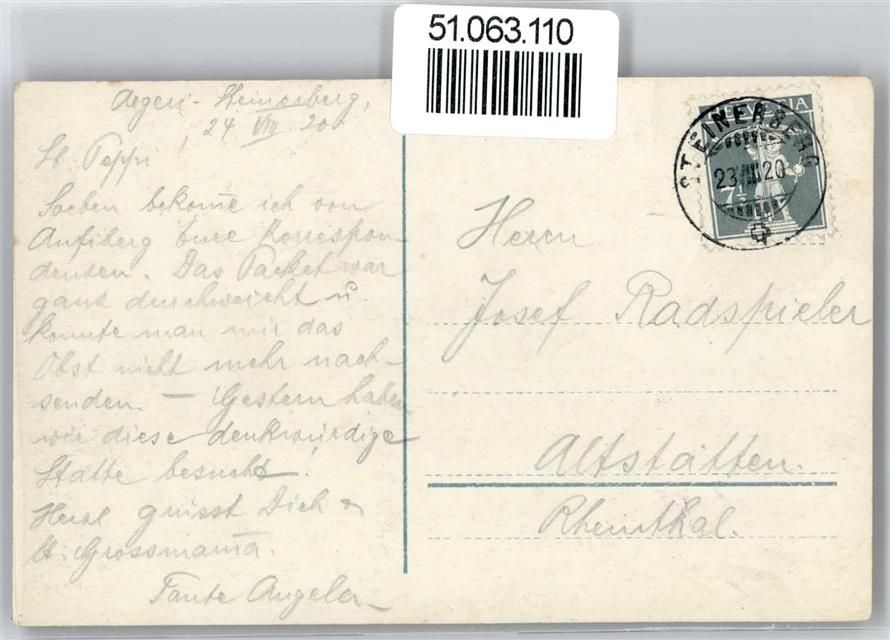 51.063.110
Aegeri-Steinerberg,
24 VIII 20
Lb. Peppi,
Soeben bekom̅e ich von
Aufiberg Eure Korrespon-
denzen. Das Packet war
ganz durchweicht u.
konnte man mir das
Obst nicht mehr nach-
senden. — Gestern haben
wir diese denkwürdige
Stätte besucht!
Herzl grüsst Dich &
lb. Grossmam̅a.
Tante Angela
HELVETIA
7½
STEINERBERG
23 VIII 20
Herrn
Josef Radspieler
Altstätten.
Rheinthal.